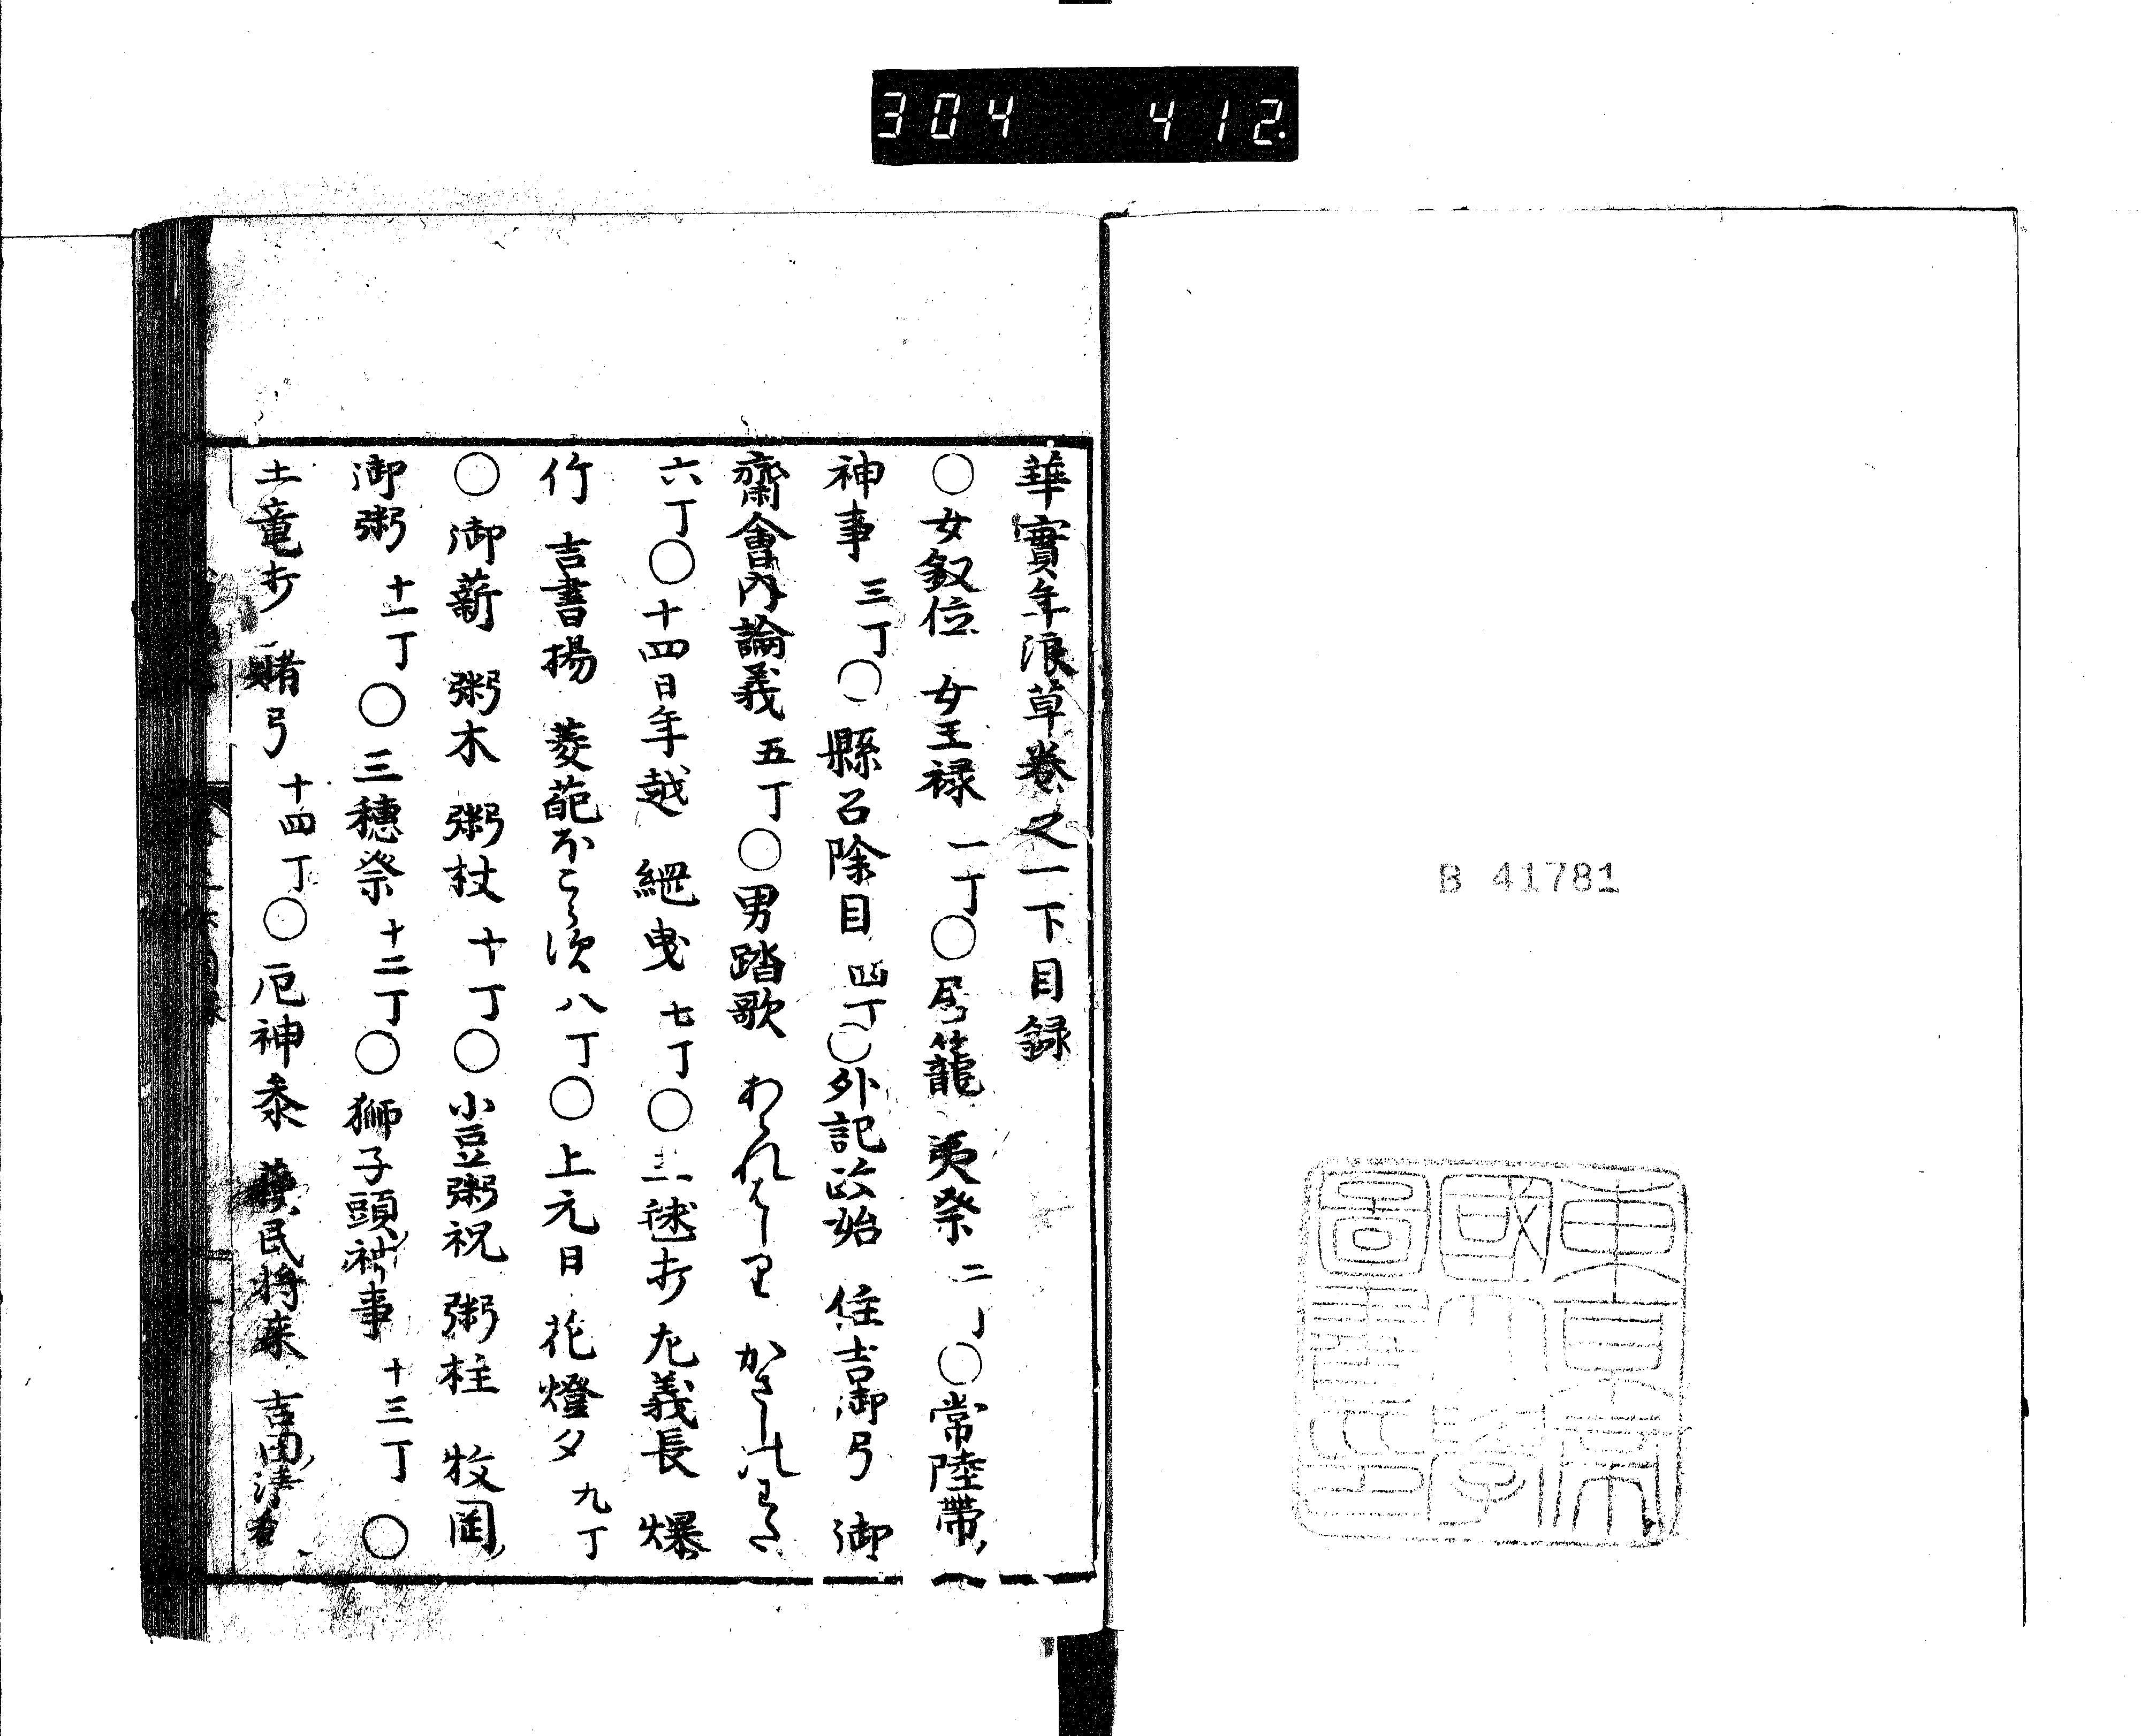 304 412
華實年浪草卷之一下目録
○女叙位 女王禄 一丁○居籠 夷祭 二丁○常陸帶
神事 三丁○縣召除目 四丁○外記政始 住吉御弓 御
齋會内論義 五丁○男踏歌 わられはしり かさしのわた
六丁○十四日年越 綱曳 七丁○三毬打 左義長 爆
竹 吉書揚 菱葩 八丁○上元日 花燈夕 九丁
○御薪 粥木 粥杖 十丁○小豆粥祝 粥柱 牧岡
御粥 十一丁○三穗祭 十二丁○獅子頭神事 十三丁○
土竜打 賭弓 十四丁○厄神参 蘓民将来 吉田清
B 41781
東京帝
國大學
圖書印